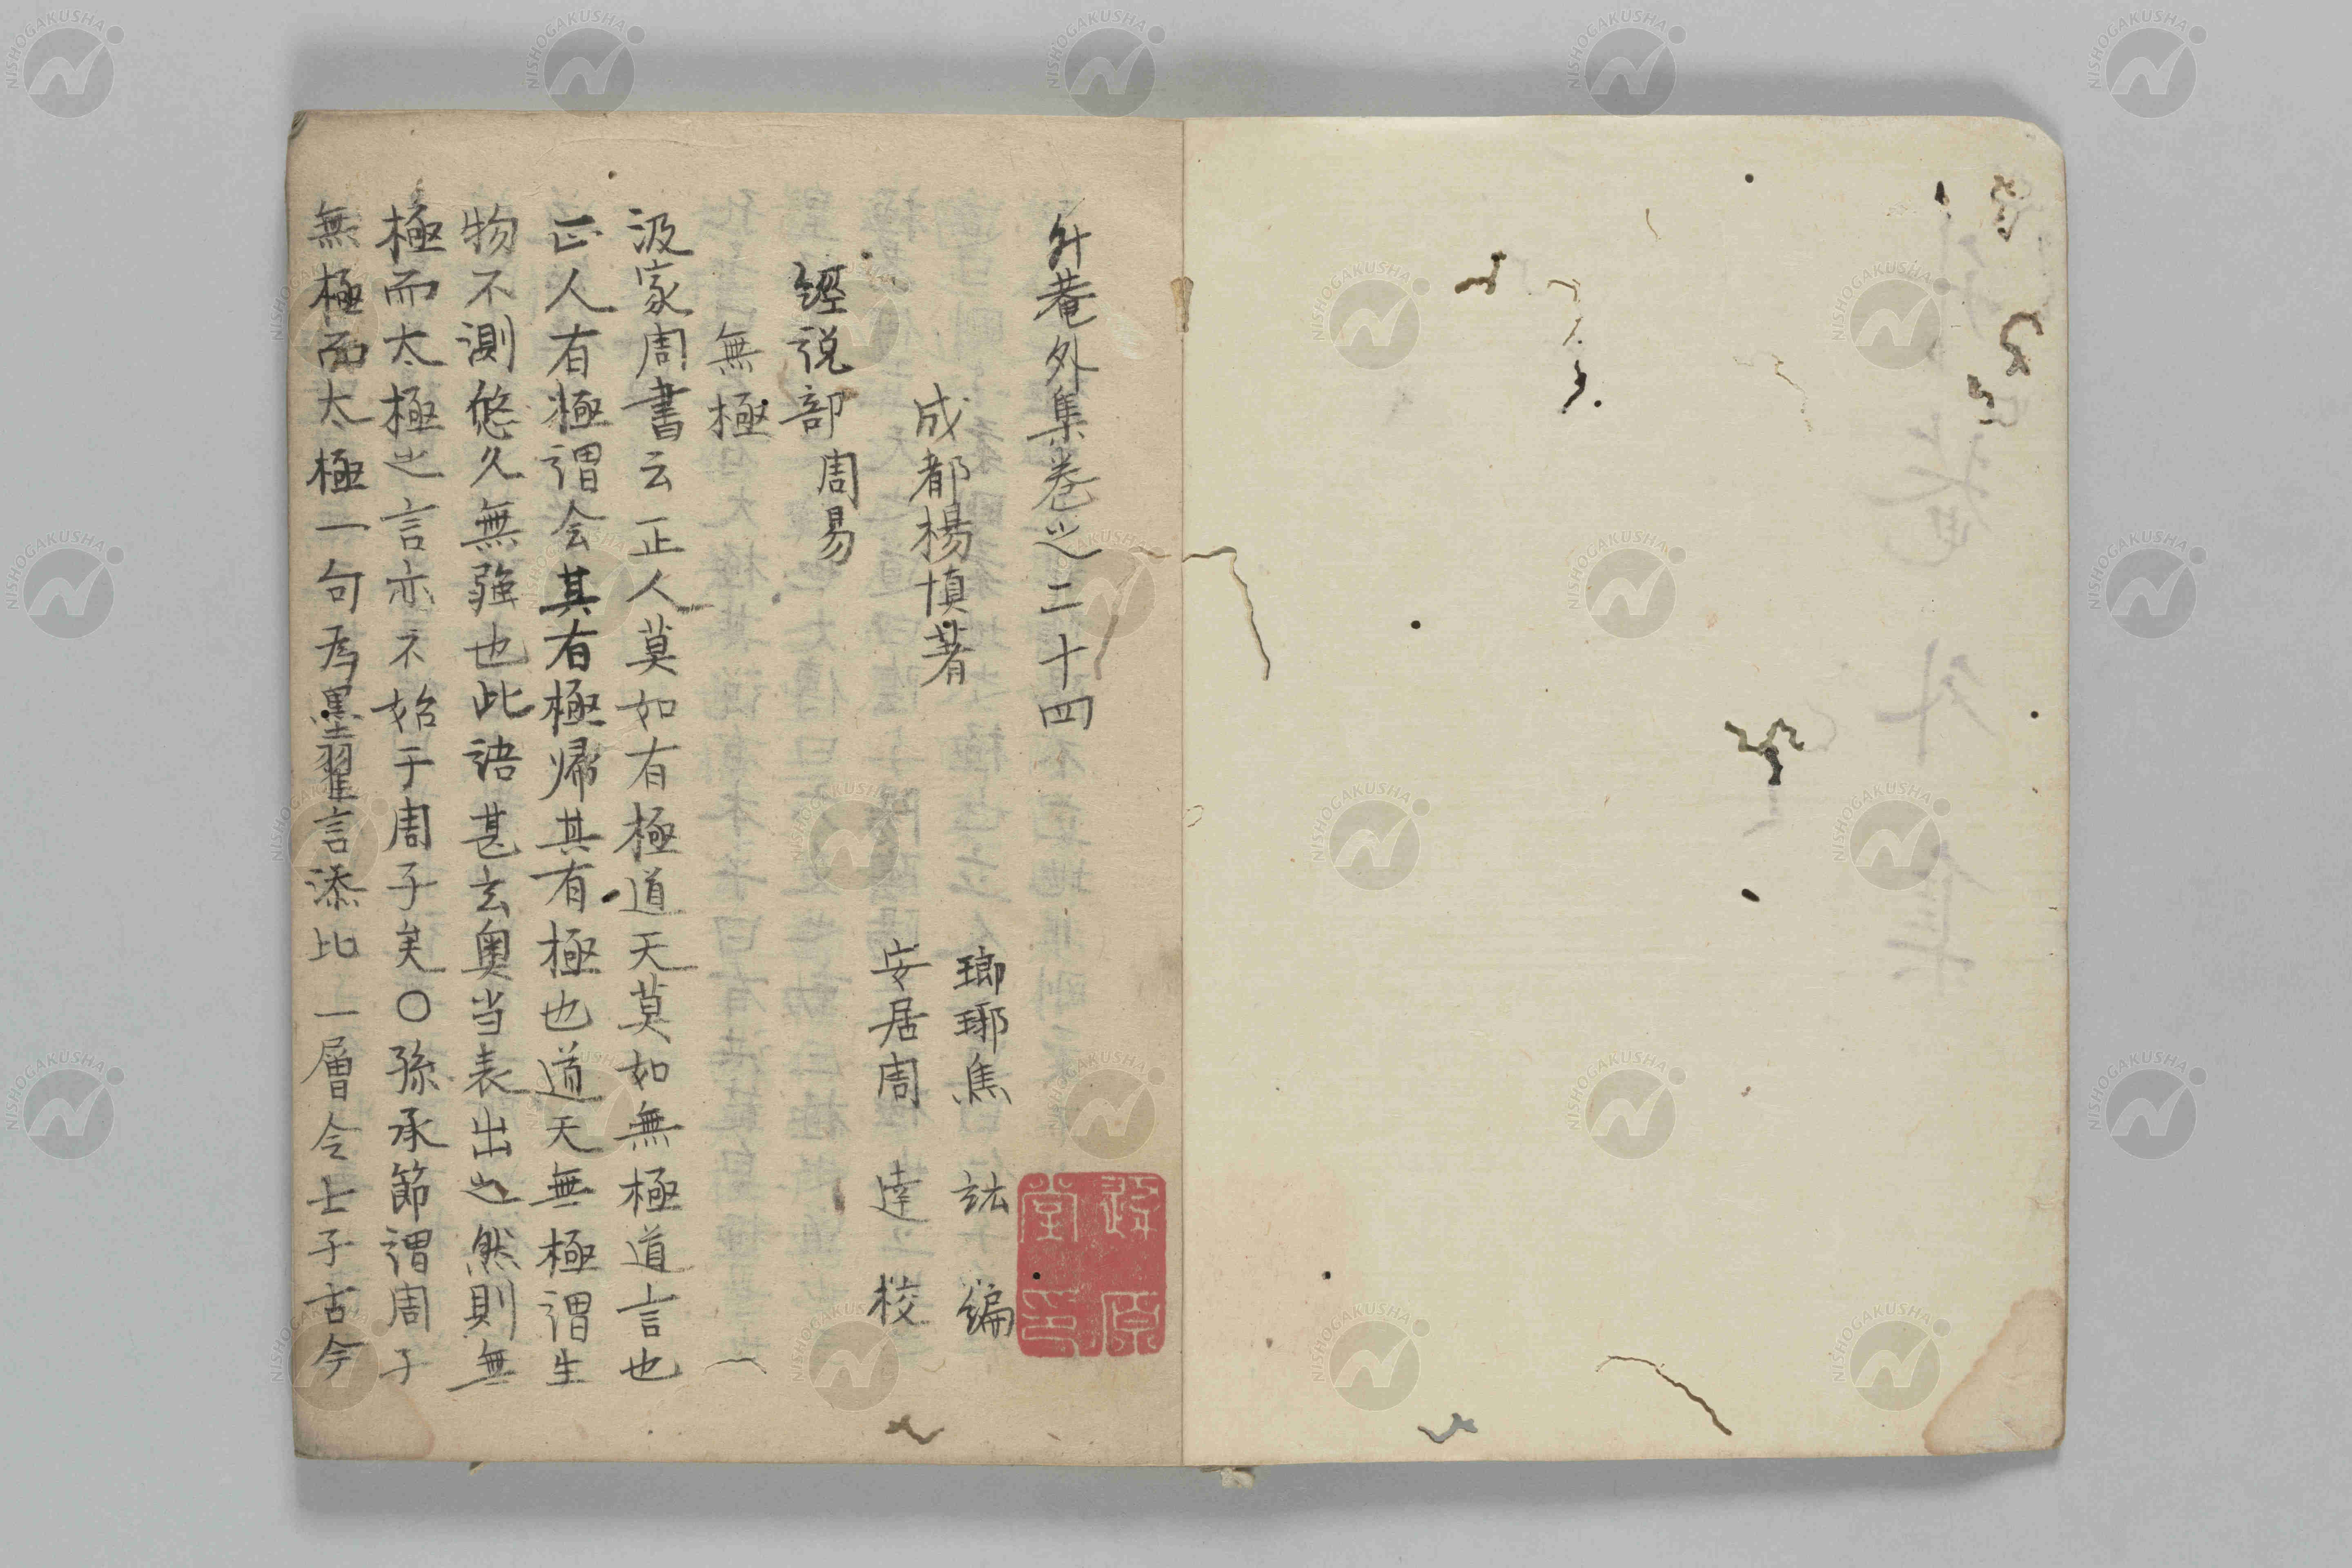 升菴外集卷之二十四
成都楊慎著
瑯琊焦 竑 編
安居周 達 校
經説部 周易
無極
汲冢周書云正人莫如有極道天莫如無極道言也
正人有極謂会其有極帰其有極也道天無極謂生
物不測悠久無強也此語甚玄奥当表出之然則無
極而太極之言亦不始于周子矣〇孫承節謂周子
無極而太極一句為墨翟言添比一層今士子古今
NISHOGAKUSHA